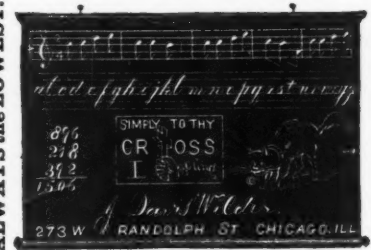 ALWAYS the LOWEST.
abcdefghijklmnopqrstuvwxyz
896
218
392
1506
SIMPLY TO THY
CR OSS
I cling
J. Davis Wilder
273 W RANDOLPH ST CHICAGO, ILL